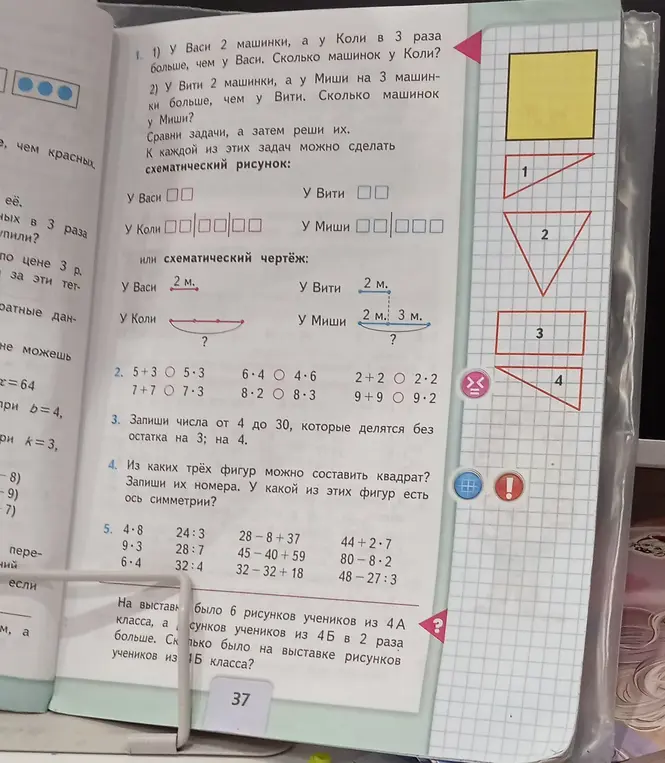 е, чем красных
её.
ных в 3 раза
упили?
по цене 3 р.
за эти тет-
ратные дан-
не можешь
x=64
при b=4,
ри k=3,
– 8)
– 9)
– 7)
пере-
ний
если
м, а
1. 1) У Васи 2 машинки, а у Коли в 3 раза
больше, чем у Васи. Сколько машинок у Коли?
2) У Вити 2 машинки, а у Миши на 3 машин-
ки больше, чем у Вити. Сколько машинок
у Миши?
Сравни задачи, а затем реши их.
К каждой из этих задач можно сделать
схематический рисунок:
У Васи У Вити
У Коли У Миши
или схематический чертёж:
У Васи 2 м. У Вити 2 м.
У Коли ? У Миши 2 м. 3 м. ?
2. 5+3 ○ 5·3 6·4 ○ 4·6 2+2 ○ 2·2
7+7 ○ 7·3 8·2 ○ 8·3 9+9 ○ 9·2
3. Запиши числа от 4 до 30, которые делятся без
остатка на 3; на 4.
4. Из каких трёх фигур можно составить квадрат?
Запиши их номера. У какой из этих фигур есть
ось симметрии?
5. 4·8 24:3 28–8+37 44+2·7
9·3 28:7 45–40+59 80–8·2
6·4 32:4 32–32+18 48–27:3
На выставке было 6 рисунков учеников из 4А
класса, а рисунков учеников из 4Б в 2 раза
больше. Сколько было на выставке рисунков
учеников из 4Б класса?
37
1
2
3
4
><
=
!
?